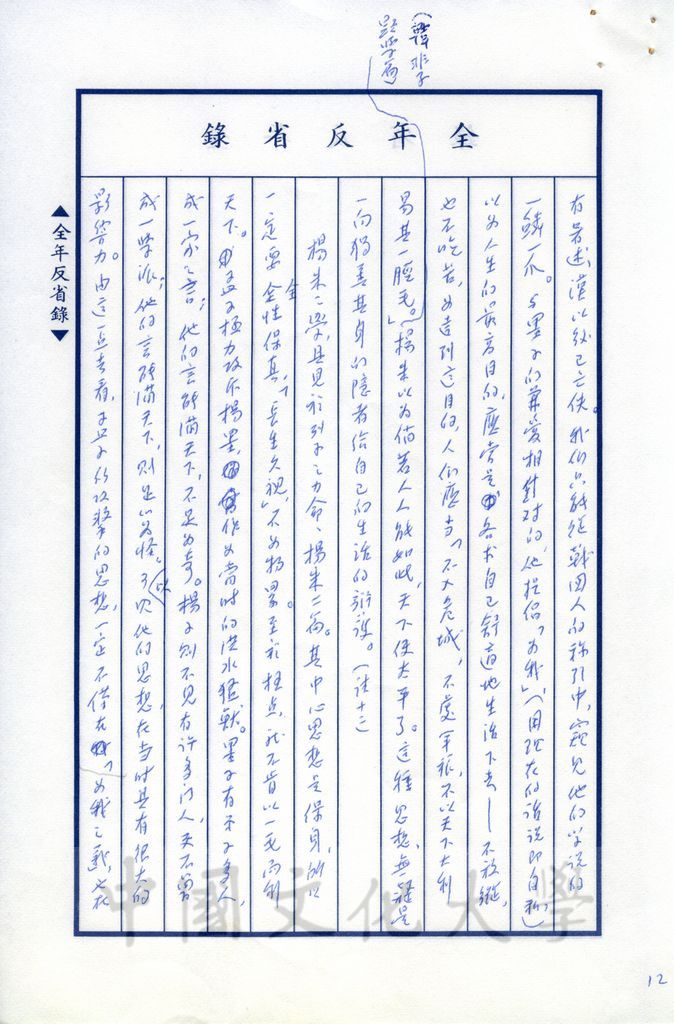 (韓非子
顯學篇)
全年反省錄
有著述，漢以後已亡佚。我們只能從戰國人的稱引中，窺見他的学說的
一鱗一爪。与墨子的兼愛相對的，他提倡「為我」(用現在的話說即自私)
以為人生的最高目的，應當是各求自己舒適地生活下去——不放縱，
也不吃苦，為達到這目的，人們應當「不入危城，不處軍旅，不以天下大利
易其一脛毛。」楊朱以為倘若人人能如此，天下便太平了。這種思想，無疑是
一向獨善其身的隱者給自己的生活的辯護。(註十三)
楊朱之學，具見於列子之力命、楊朱二篇。其中心思想是保身，所以
一定要全性保真，「長生久視」，不為物累。至於極点，就不肯以一毛而利
天下。孟子極力攻斥楊墨，作為當時的洪水猛獸。墨子有弟子多人，
成一家之言；他的言論滿天下，不足為奇。楊子則不見有許多门人，又不曾
成一學派；他的言論滿天下，則足以為怪。可以他的思想，在当时具有很大的
影響力。由這一点去看，孟子所攻擊的思想，一定不僅在「為我之義，必在
▲全年反省錄▼
中國文化大學
12